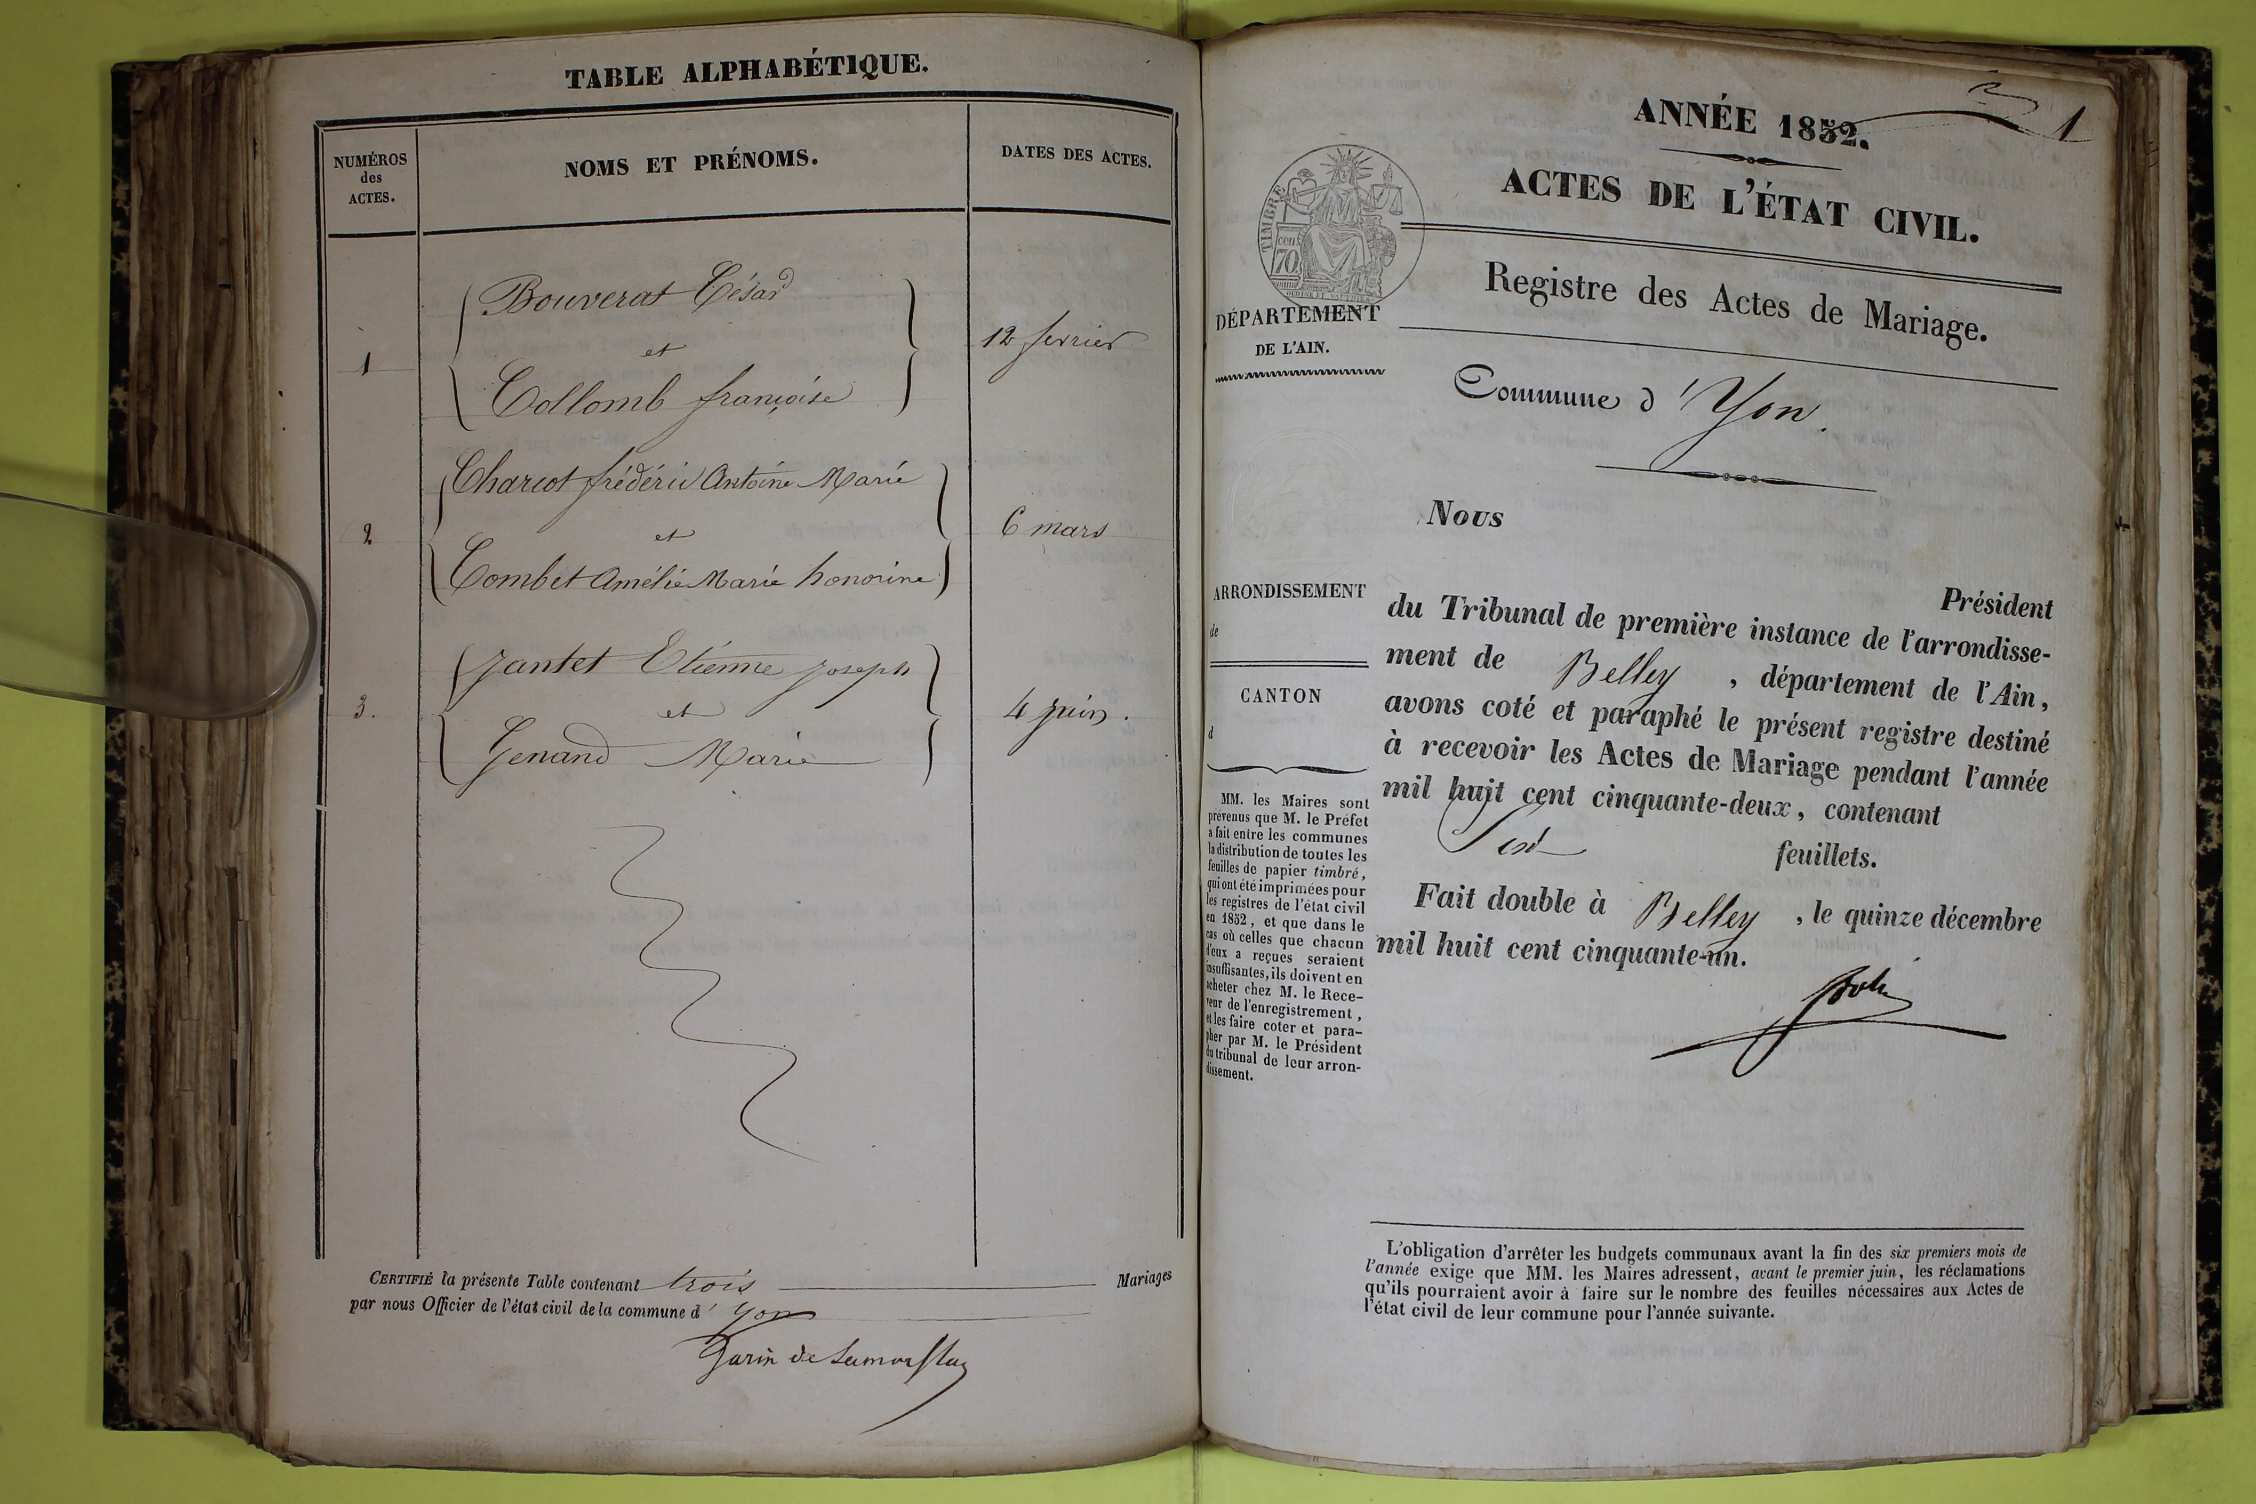 TABLE ALPHABÉTIQUE.
NUMÉROS
des
ACTES.
NOMS ET PRÉNOMS.
DATES DES ACTES.
Bouverat César
1 et 12 fevrier
Collomb françoise
Charcot frédéric Antoine Marie
2 et 6 mars
Combet Amélie Marie honorine
Jantet Etienne Joseph
3. et 4 juin.
Genand Marie
CERTIFIÉ la présente Table contenant trois Mariages
par nous Officier de l'état civil de la commune d' Yon
Garin de
1
ANNÉE 1852.
ACTES DE L'ÉTAT CIVIL.
TIMBRE
70
Registre des Actes de Mariage.
DÉPARTEMENT
DE L'AIN.
Commune d' Yon.
Nous
Président
ARRONDISSEMENT
de
CANTON
d
du Tribunal de première instance de l'arrondisse-
ment de Belley , département de l'Ain,
avons coté et paraphé le présent registre destiné
à recevoir les Actes de Mariage pendant l'année
mil huit cent cinquante-deux, contenant
feuillets.
Fait double à Belley , le quinze décembre
mil huit cent cinquante-un.
MM. les Maires sont
prévenus que M. le Préfet
a fait entre les communes
la distribution de toutes les
feuilles de papier timbré,
qui ont été imprimées pour
les registres de l'état civil
en 1852, et que dans le
cas où celles que chacun
d'eux a reçues seraient
insuffisantes, ils doivent en
acheter chez M. le Rece-
veur de l'enregistrement,
et les faire coter et para-
pher par M. le Président
du tribunal de leur arron-
dissement.
L'obligation d'arrêter les budgets communaux avant la fin des six premiers mois de
l'année exige que MM. les Maires adressent, avant le premier juin, les réclamations
qu'ils pourraient avoir à faire sur le nombre des feuilles nécessaires aux Actes de
l'état civil de leur commune pour l'année suivante.